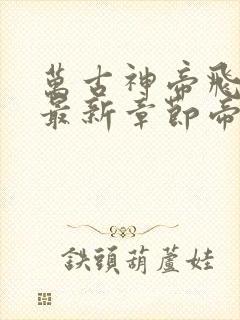 萬古神帝飛
最新章節帝
鉄頭葫蘆娃